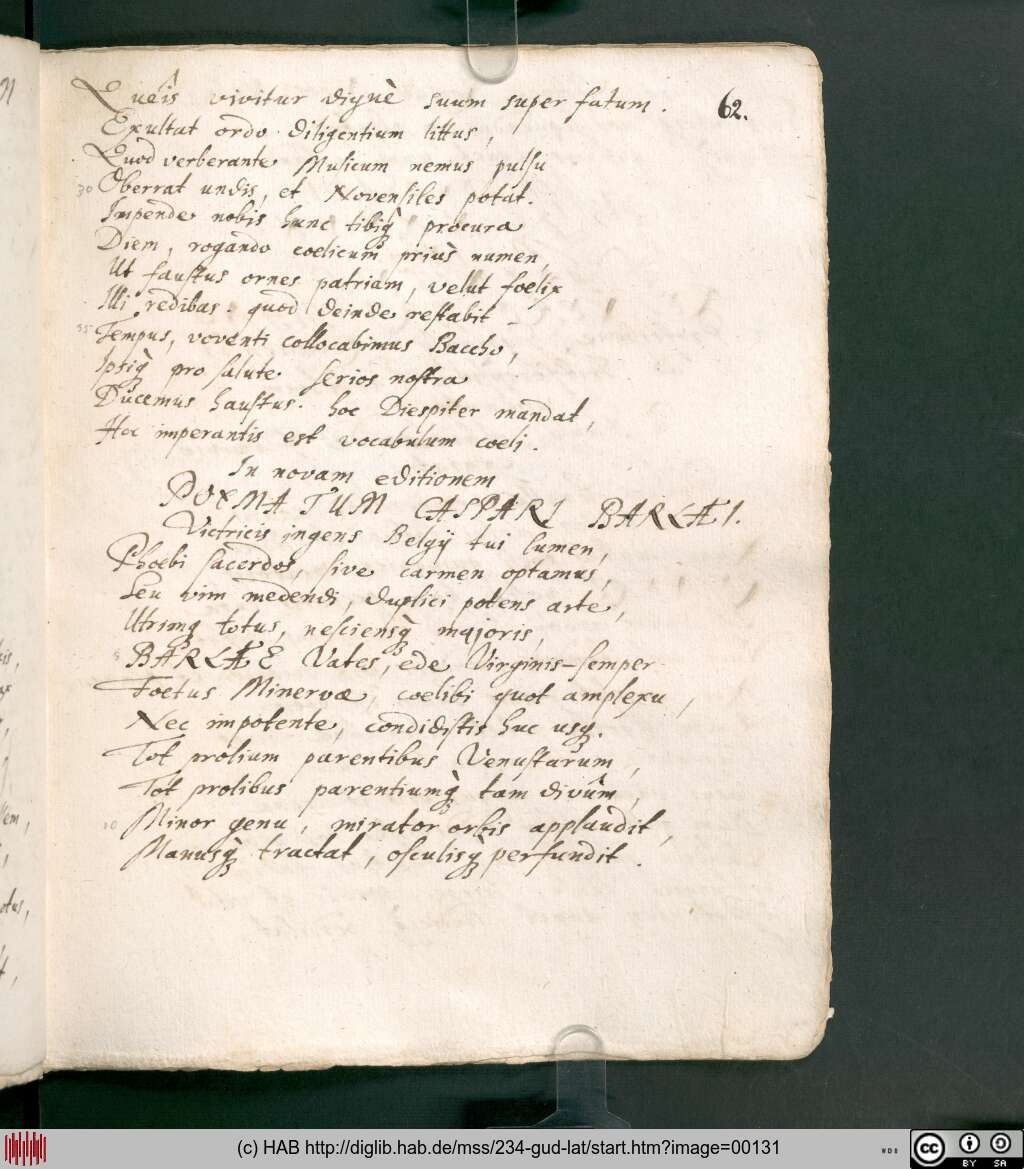 Queîs vivitur dignè suum super fatum.
62.
Exultat ordo diligentium littus,
Quod verberante Musicum nemus pulsu
30 Oberrat undis, et Novensiles potat.
Impende nobis hunc tibiq̀ procura
Diem, rogando coelicum priùs numen,
Ut faustus ornes patriam, velut foelix
Illi redibas. quod deinde restabit
35 Tempus, voventi collocabimus Baccho,
Ipsiq̀ pro salute serios nostra
Ducemus haustus. hoc Diespiter mandat,
Hoc imperantis est vocabulum coeli.
In novam editionem
POEMATUM CASPARI BARLÆI.
Victricis ingens Belgij tui lumen,
Phoebi sacerdos, sive carmen optamus,
Seu vim medendi, duplici potens arte,
Utrimq totus, nesciensq̀ majoris,
5 BARLÆE Vates, ede Virginis-semper
Foetus Minervæ, coelibi quot amplexu,
Nec impotente, condidistis huc usq.
Tot prolium parentibus Venustarum,
Tot prolibus parentiumq̀ tam divûm,
10 Minor genu, mirator orbis applaudit,
Manusq̀ tractat, osculisq̀ perfundit.
(c) HAB http://diglib.hab.de/mss/234-gud-lat/start.htm?image=00131
CC BY SA